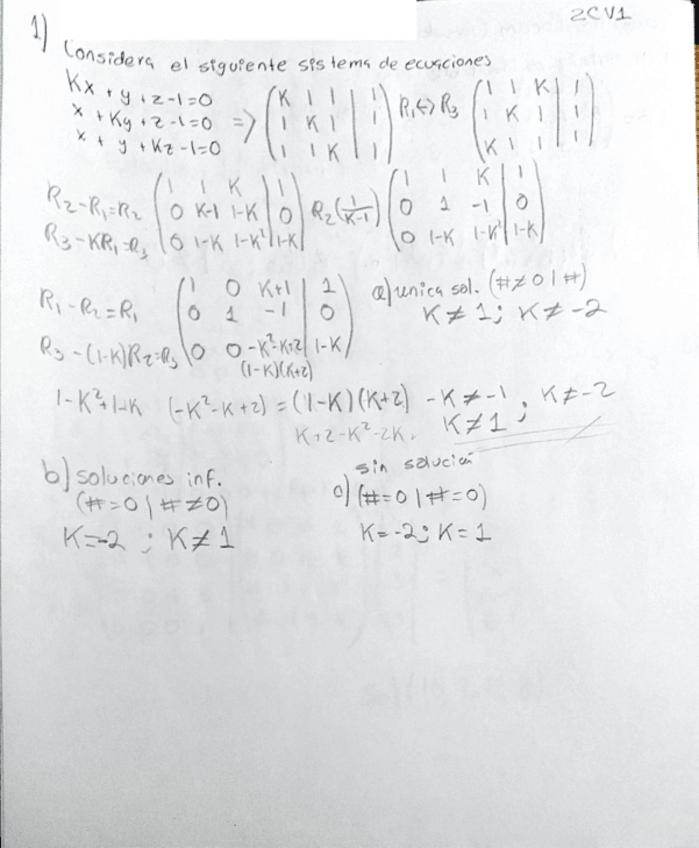 2CV1
1) Considera el siguiente sistema de ecuaciones
Kx + y + z - 1 = 0
x + Ky + z - 1 = 0
x + y + Kz - 1 = 0
=> (K 1 1 | 1
1 K 1 | 1
1 1 K | 1)
R₁<->R₃ (1 1 K | 1
1 K 1 | 1
K 1 1 | 1)
R₂-R₁=R₂
R₃-KR₁=R₃
(1 1 K | 1
0 K-1 1-K | 0
0 1-K 1-K² | 1-K)
R₂(1/K-1) (1 1 K | 1
0 1 -1 | 0
0 1-K 1-K² | 1-K)
R₁-R₂=R₁
R₃-(1-K)R₂=R₃
(1 0 K+1 | 1
0 1 -1 | 0
0 0 -K²-K+2 | 1-K)
(1-K)(K+2)
a) unica sol. (#≠0 | #)
K≠1; K≠-2
1-K²+1-K (-K²-K+2) = (1-K)(K+2) -K≠-1; K≠-2
K+2-K²-2K. K≠1
b) soluciones inf.
(#=0 | #≠0)
K=-2 ; K≠1
sin solución
c) (#=0 | #=0)
K=-2; K=1